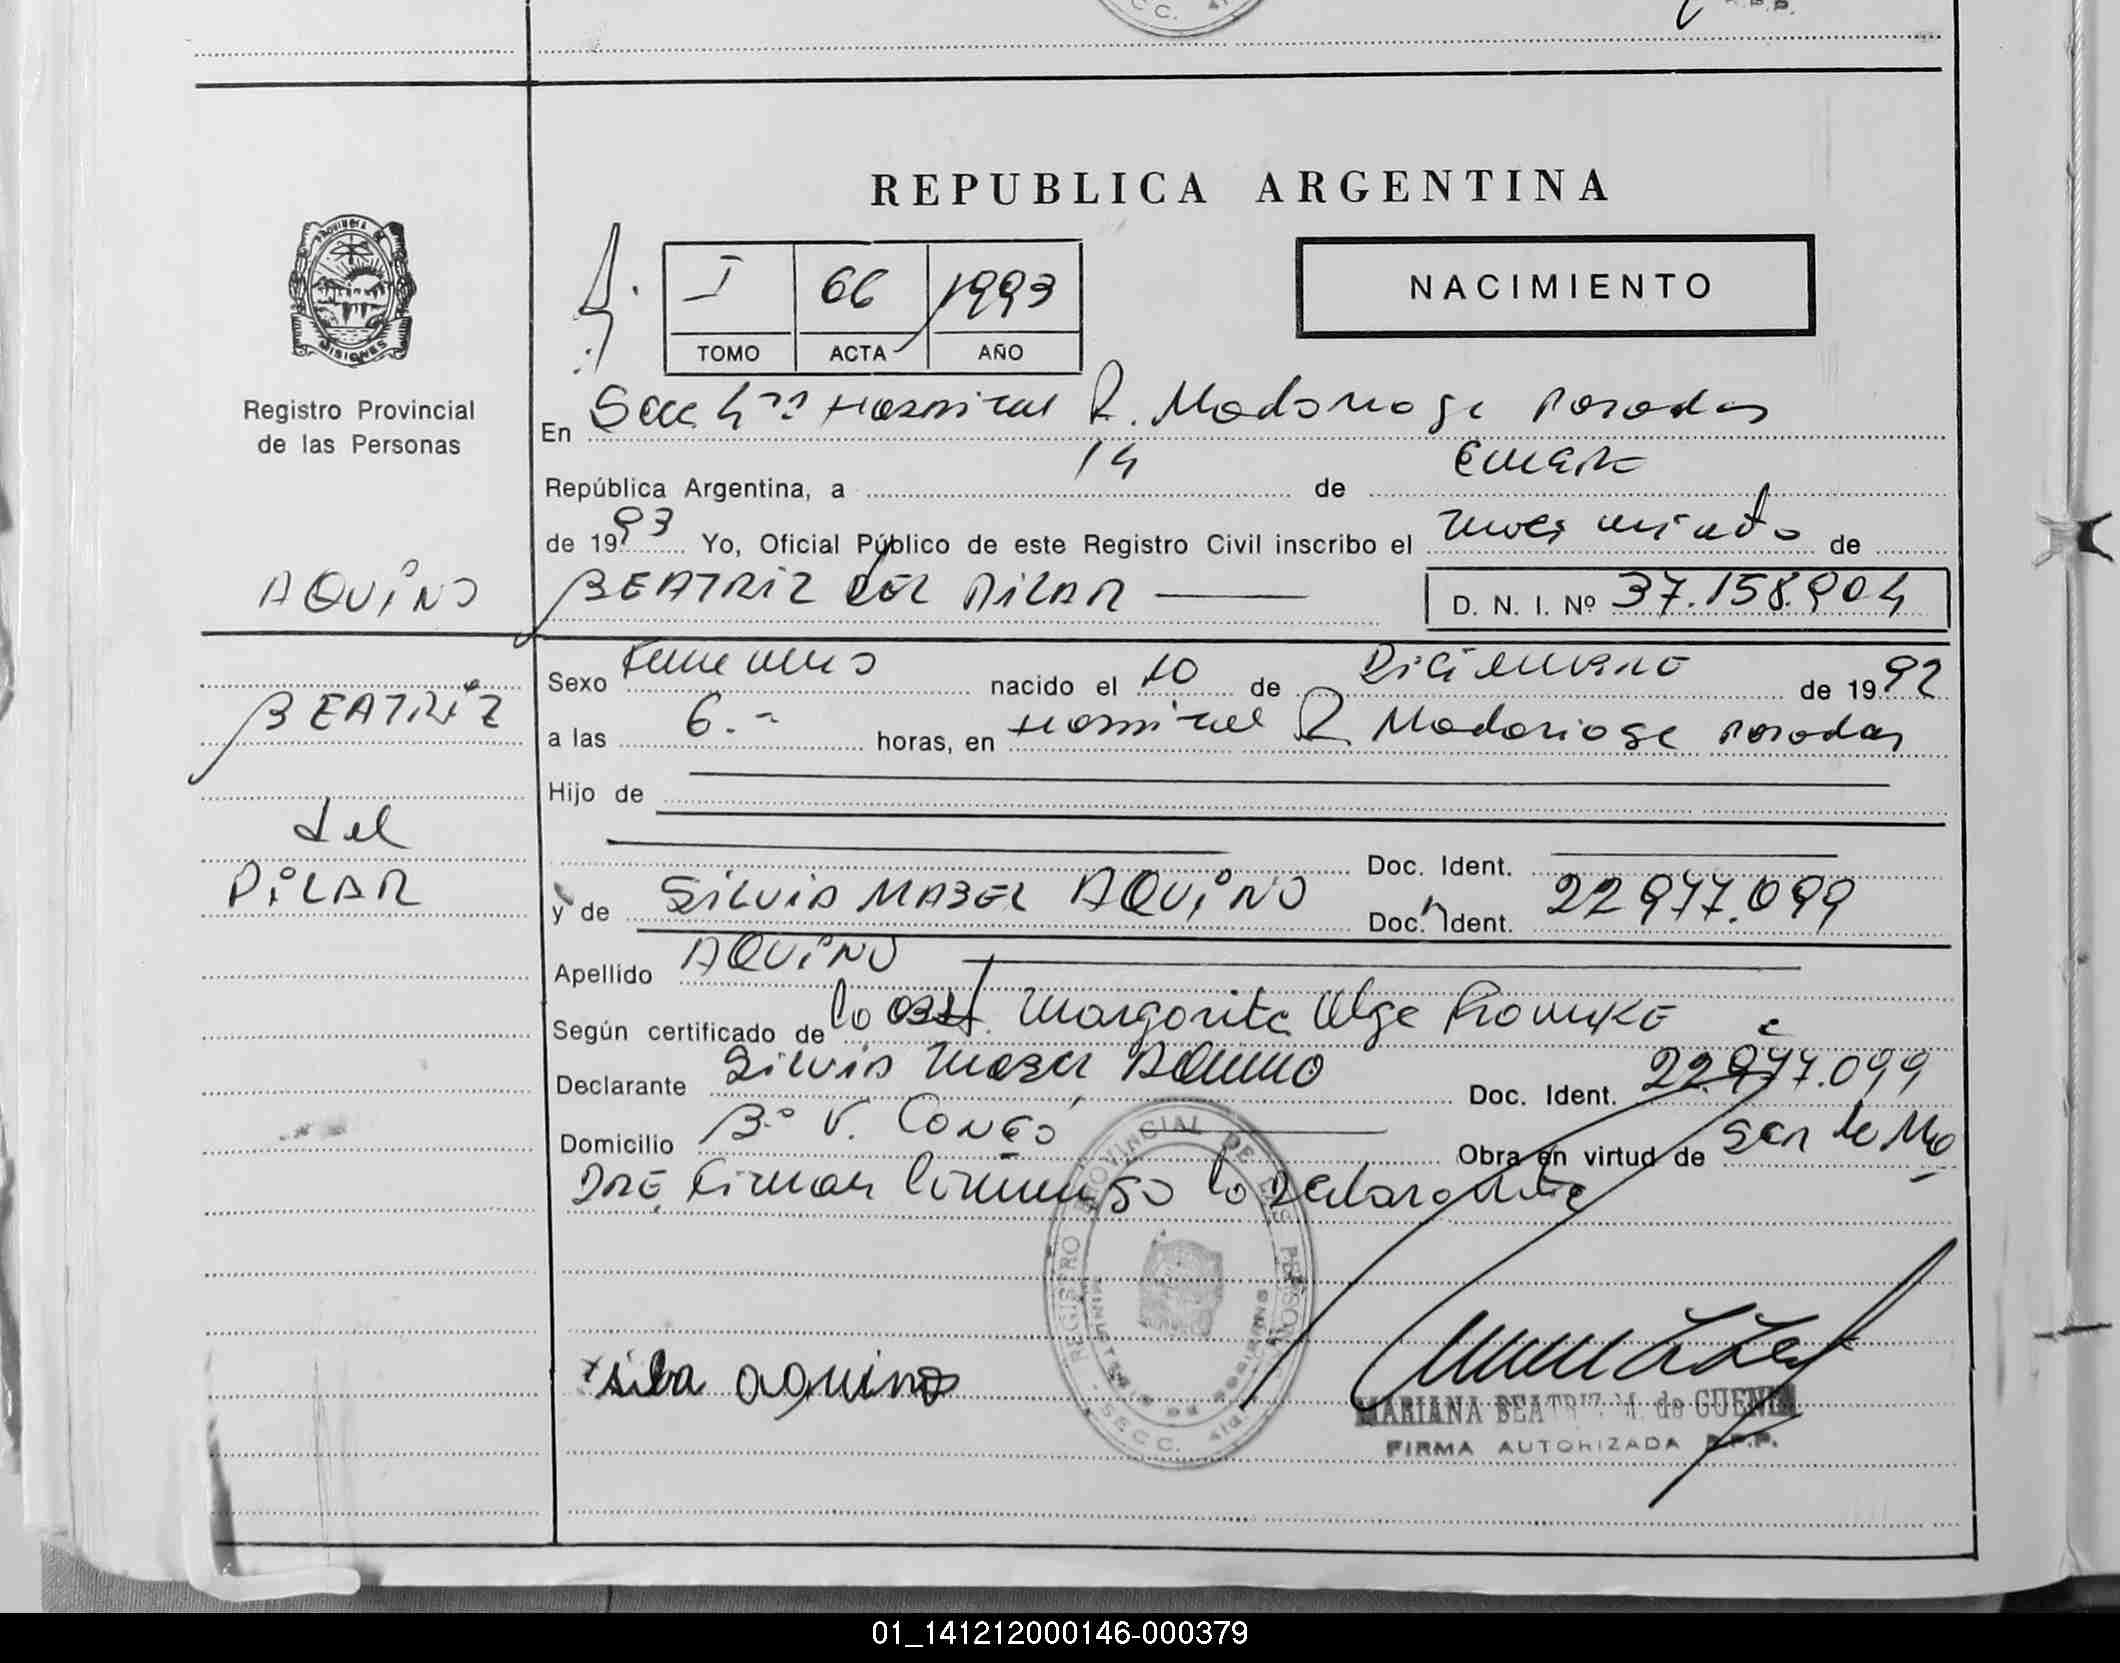 REPUBLICA ARGENTINA
PROVINCIA DE
MISIONES
I 66 1993
TOMO ACTA AÑO
NACIMIENTO
Registro Provincial
de las Personas
En Secc 4ta Hospital R. Madariaga Posadas
República Argentina, a 14 de Enero
de 1993 Yo, Oficial Público de este Registro Civil inscribo el nacimiento de
AQUINO
BEATRIZ DEL PILAR
D. N. I. Nº 37.158.904
Sexo Femenino nacido el 10 de Diciembre de 1992
BEATRIZ
a las 6.- horas, en Hospital R Madariaga Posadas
Hijo de
del
Doc. Ident.
PILAR
y de SILVIA MABEL AQUINO Doc. Ident. 22977.099
Apellido AQUINO
Según certificado de la obst. Margarita Olga
Declarante Silvia Mabel Aquino Doc. Ident. 22.977.099
Domicilio Bº V. Obra en virtud de ser la Ma
dre Firman conmigo la Declarante
REGISTRO PROVINCIAL DE LAS PERSONAS
SECC. 4ta.
silva aquino
MARIANA BEATRIZ M. de
FIRMA AUTORIZADA R.P.P.
01_141212000146-000379